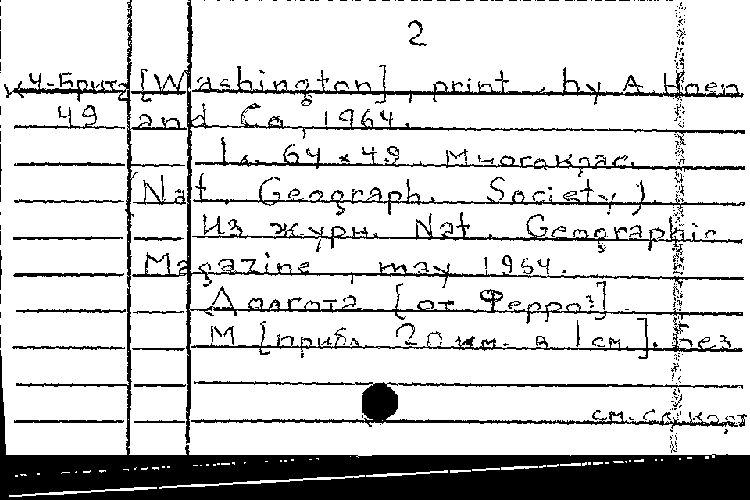 2
К4-Брит [Washington], print. by A. Hoen
49 and Co, 1964.
1 л. 64 × 49. Многокрас.
(Nat. Geograph. Society).
Из журн. Nat. Geographic
Magazine, may 1964.
Долгота [от Ферро?]
М [прибл. 20 км. в 1 см.]. Без
см. сл. карт